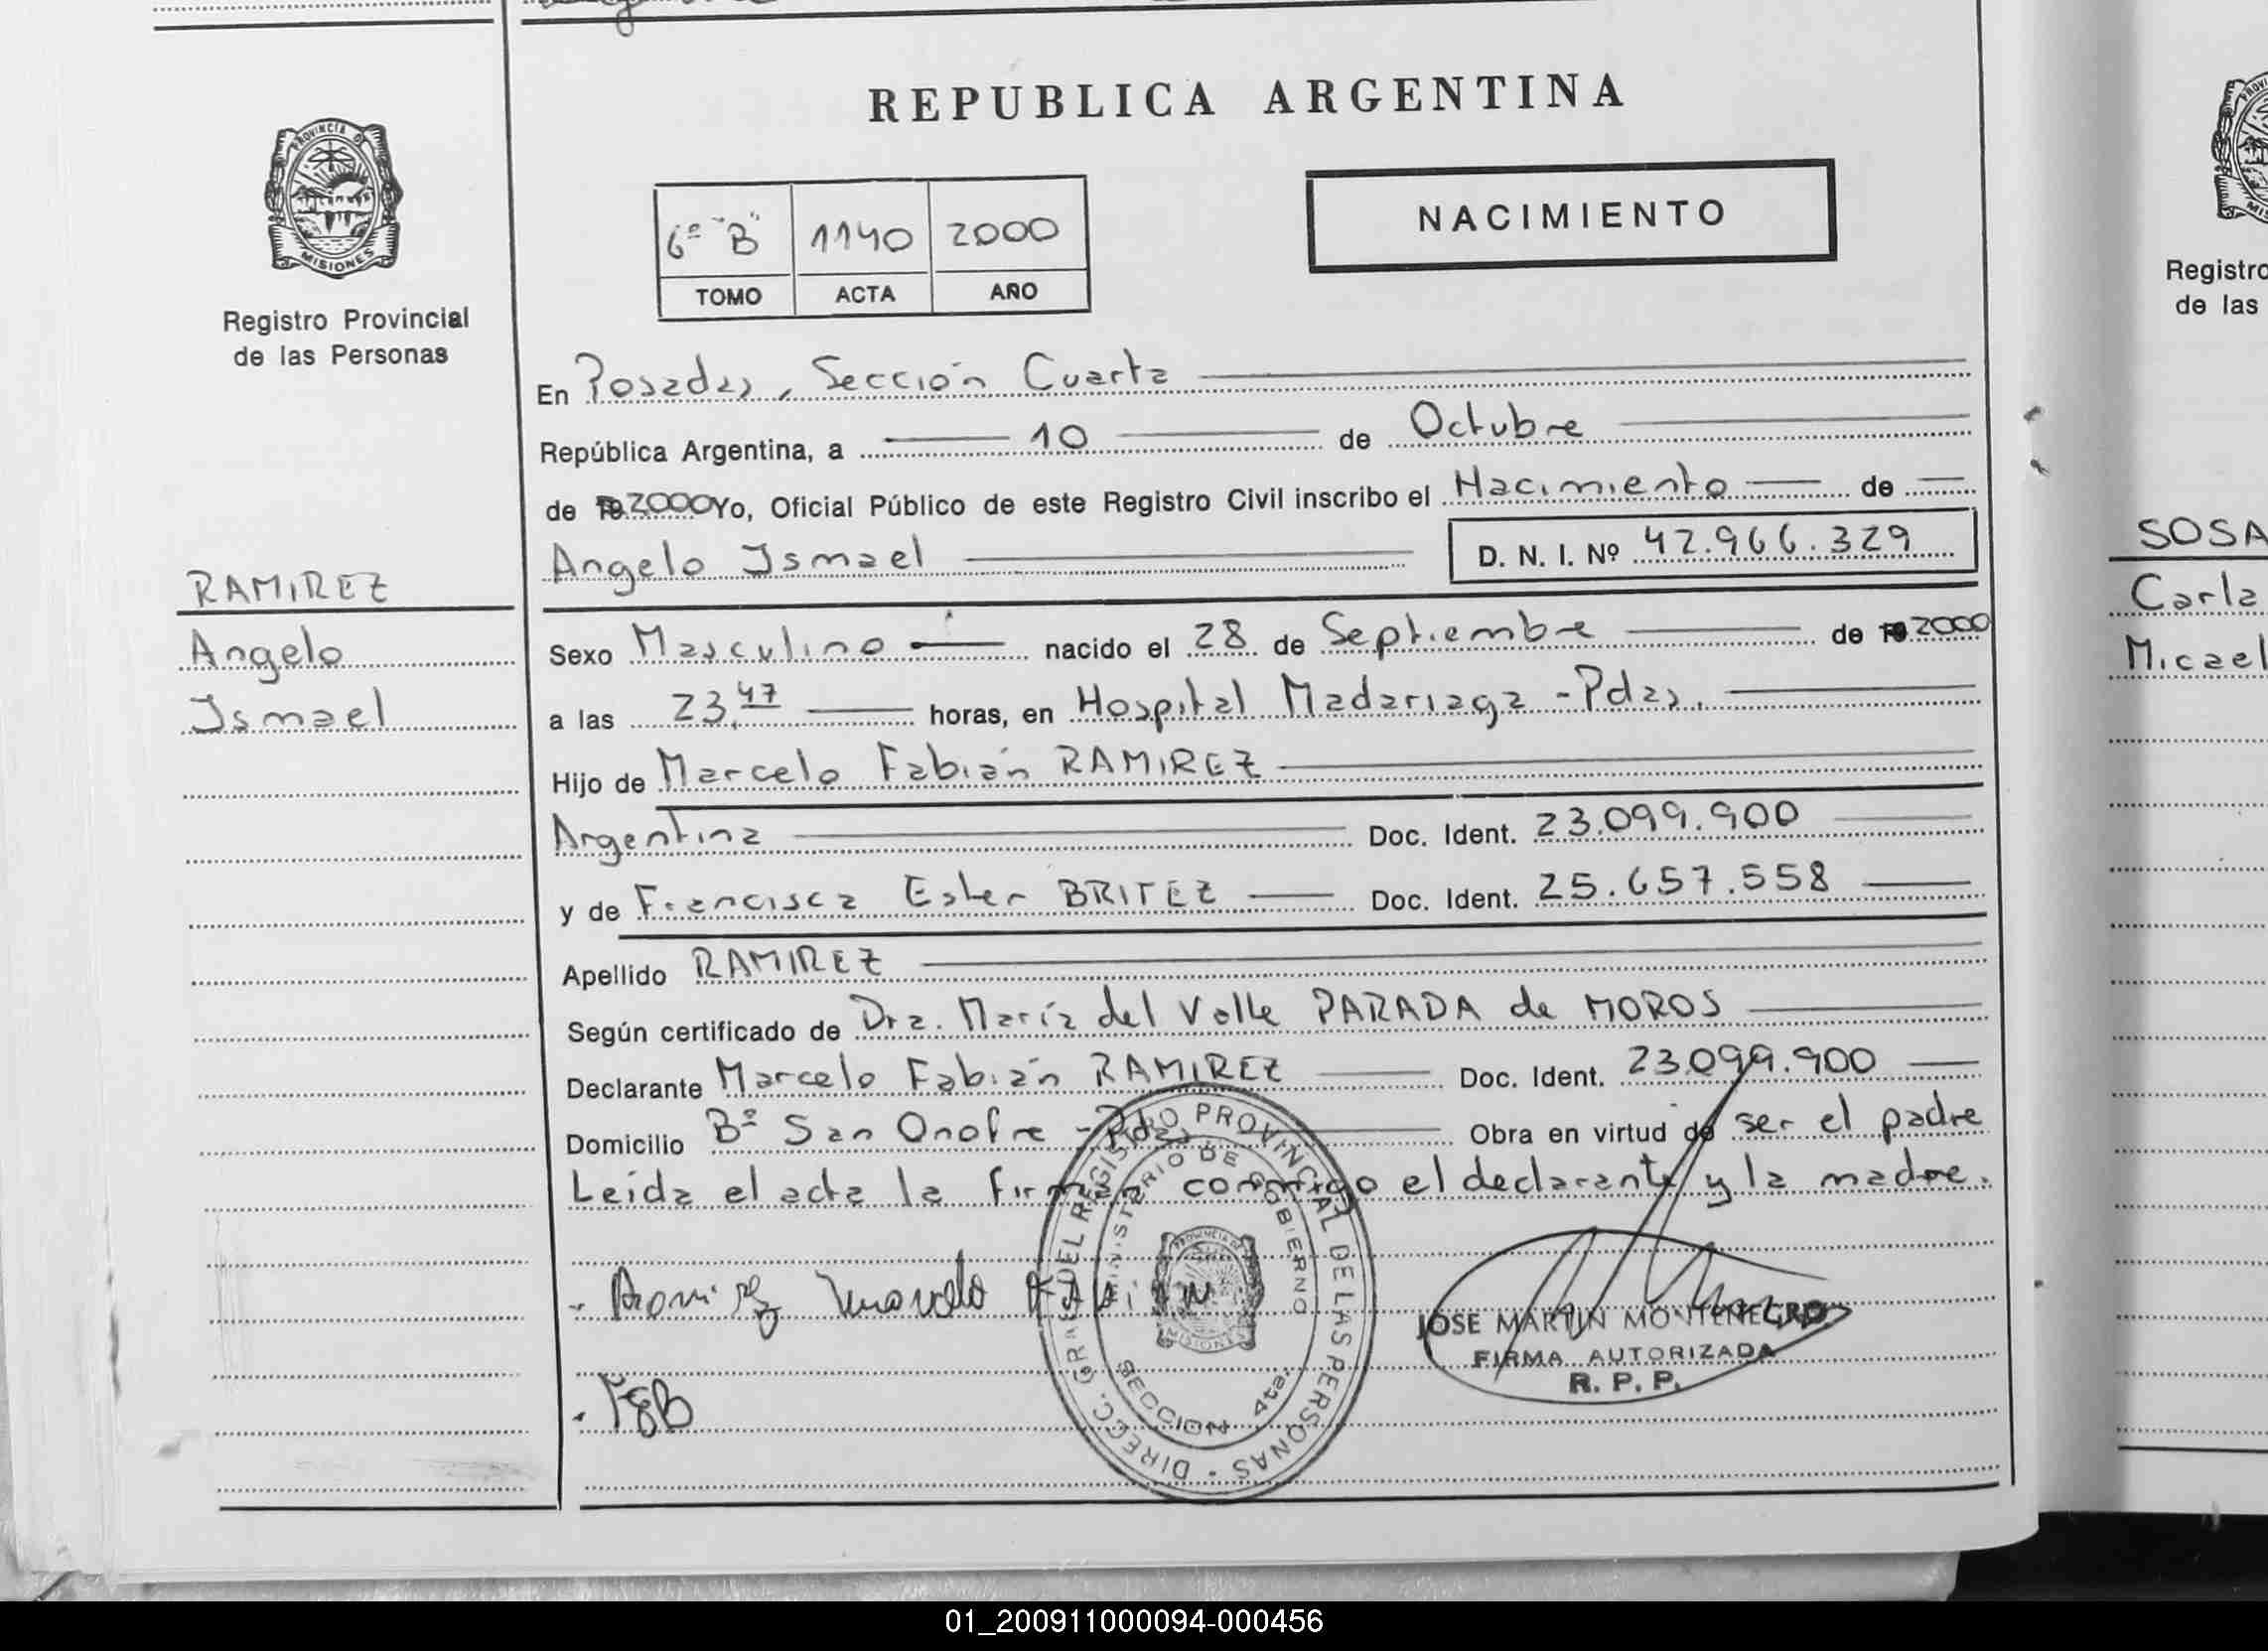 REPUBLICA ARGENTINA
PROVINCIA DE
MISIONES
Registro Provincial
de las Personas
6º "B" 1140 2000
TOMO ACTA AÑO
NACIMIENTO
En Posadas, Sección Cuarta
República Argentina, a 10 de Octubre
de 2000 Yo, Oficial Público de este Registro Civil inscribo el Nacimiento de
Angelo Ismael D. N. I. Nº 42.966.329
RAMIREZ
Angelo
Ismael
Sexo Masculino nacido el 28 de Septiembre de 2000
a las 23,47 horas, en Hospital Madariaga - Pdas.
Hijo de Marcelo Fabián RAMIREZ
Argentina Doc. Ident. 23.099.900
y de Francisca Ester BRITEZ Doc. Ident. 25.657.558
Apellido RAMIREZ
Según certificado de Dra. María del Valle PARADA de MOROS
Declarante Marcelo Fabián RAMIREZ Doc. Ident. 23.099.900
Domicilio Bº San Onofre - Pdas. Obra en virtud de ser el padre
Leída el acta la firman conmigo el declarante y la madre.
Ramirez Marcelo Fabian
FEB
DIRECC. GRAL. DEL REGISTRO PROVINCIAL DE LAS PERSONAS -
MINISTERIO DE GOBIERNO
SECCION 4ta.
JOSE MARTIN MONTENEGRO
FIRMA AUTORIZADA
R. P. P.
Registro
de las
SOSA
Carla
Micael
01_200911000094-000456